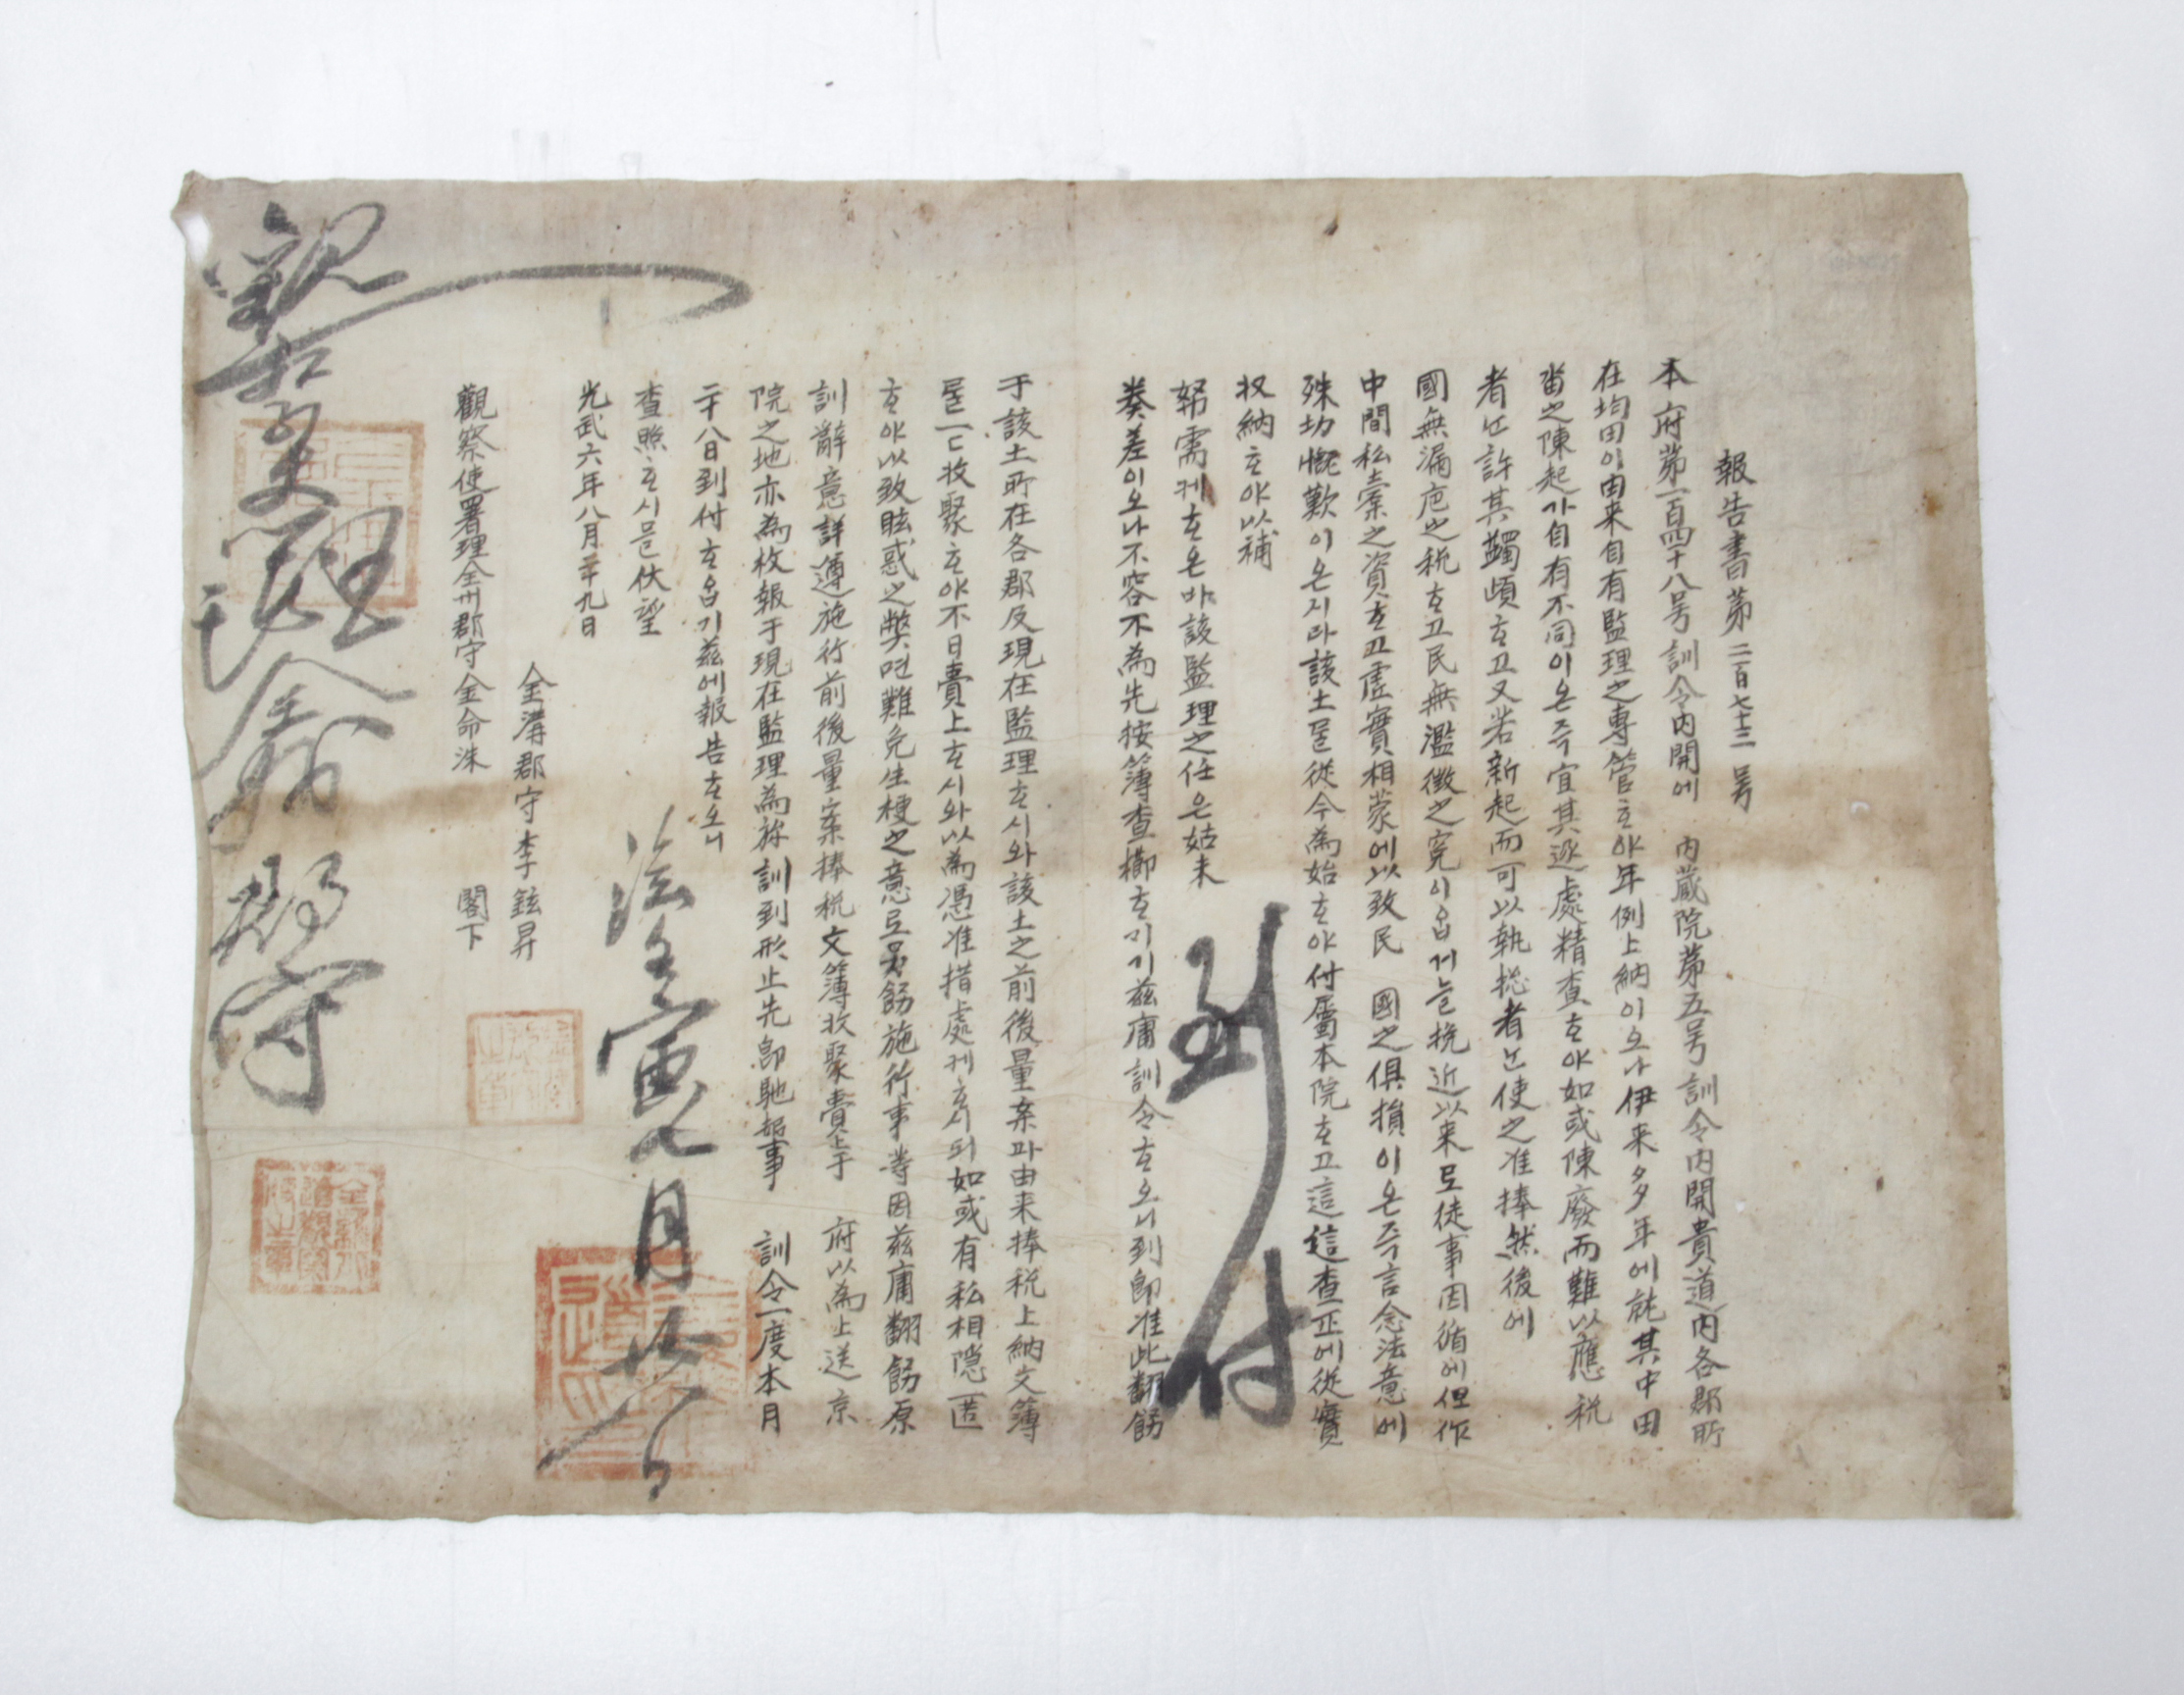 報告書第二百七十三号
本府第一百四十八号訓令內開에 內藏院第五号訓令內開貴道內各郡所
在均田이由来自有監理之專管ᄒᆞ야年例上納이오나伊来多年에就其中田
畓之陳起가自有不同이온즉宜其逐處精査ᄒᆞ야如或陳廢而難以應稅
者난許其蠲頉ᄒᆞ고又若新起而可以執捴者난使之准捧然後에
國無漏庖之稅ᄒᆞ고民無濫徵之寃이옵거늘挽近以来로徒事因循에但作
中間私槖之資ᄒᆞ고虛實相蒙에以致民 國之俱損이온즉言念法意에
殊切慨歎이온지라該土를從今為始ᄒᆞ야付屬本院ᄒᆞ고這這查正에從實
收納ᄒᆞ야以補
帑需케ᄒᆞ온바該監理之任은姑未
奏差이오나不容不為先按簿查櫛ᄒᆞ기기玆庸訓令ᄒᆞ오니到卽准此翻飭
于該土所在各郡及現在監理ᄒᆞ시와該土之前後量案과由来捧稅上納文簿
를一一收聚ᄒᆞ야不日賫上ᄒᆞ시와以為憑准措處케ᄒᆞ시되如或有私相隱匿
ᄒᆞ야以致眩惑之獘면難免生梗之意로另飭施行事等因玆庸翻飭原
訓辭意詳遵施行前後量案捧稅文簿收聚賫上于 府以為上送京
院之地亦為枚報于現在監理為旀訓到形止先卽馳報事 訓令一度本月
二十八日到付ᄒᆞ옵기玆에報告ᄒᆞ오니
查照ᄒᆞ시믈伏望
光武六年八月二十九日
金溝郡守李鉉昇
觀察使署理全州郡守金命洙 閣下
到付